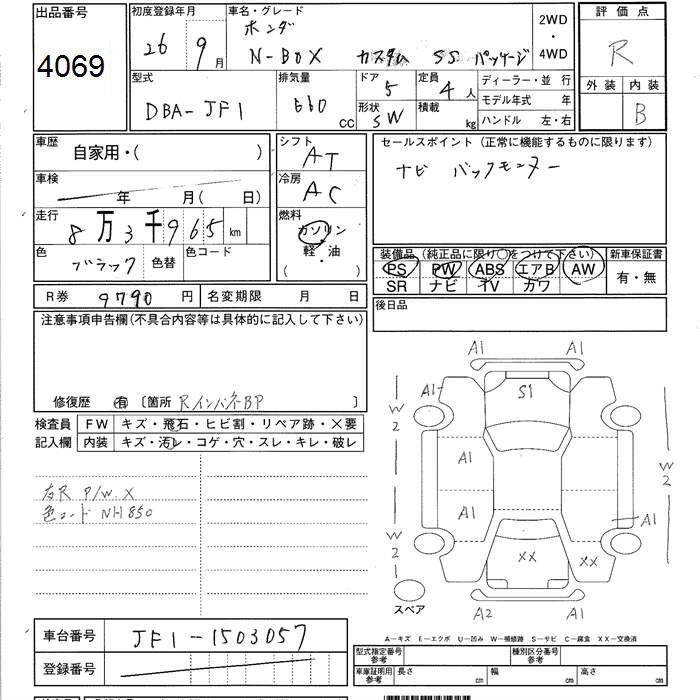 出品番号
4069
初度登録年月
26 9月
車名・グレード
ホンダ
N-BOX カスタム SS パッケージ
2WD
・
4WD
評価点
R
外装 内装
B
型式
DBA-JF1
排気量
660 CC
ドア
5
形状
SW
定員
4人
積載
kg
ディーラー・並 行
モデル年式 年
ハンドル 左・右
車歴
自家用・( )
車検
年 月( 日)
走行
8万3千965km
色
ブラック
色替
色コード
シフト
AT
冷房
AC
燃料
ガソリン
軽・油
( )
セールスポイント(正常に機能するものに限ります)
ナビ バックモニター
装備品(純正品に限り〇をつけて下さい)
PS PW ABS エアB AW
SR ナビ TV カワ
新車保証書
有・無
R券 9790円
名変期限 月 日
後日品
注意事項申告欄(不具合内容等は具体的に記入して下さい)
修復歴 有 〔箇所 RインパネBP 〕
検査員
記入欄
FW キズ・飛石・ヒビ割・リペア跡・X要
内装 キズ・汚レ・コゲ・穴・スレ・キレ・破レ
左R P/W X
色コード NH850
A1 A1
A1 S1
W2 W2
A1
W2
A1 A1
W2
XX XX
スペア
A2 A1
A―キズ E―エクボ U―凹み W―補修跡 S―サビ C―腐食 XX―交換済
車台番号 JF1-1503057
登録番号
型式指定番号
参考
種別区分番号
参考
車庫証明用
参考
長さ cm 幅 cm 高さ cm